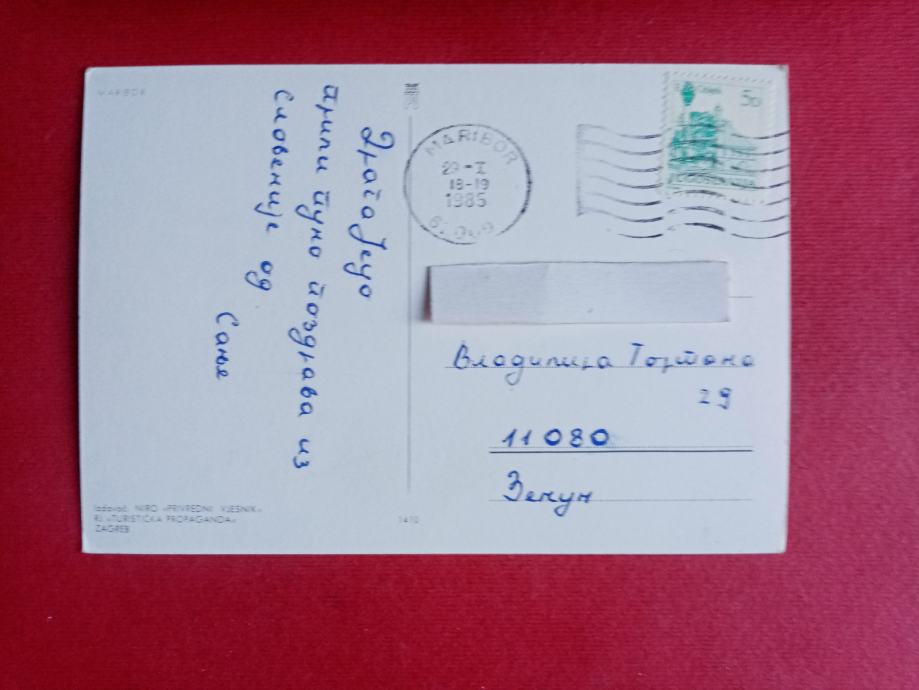 MARIBOR
Драга Јецо
прими пуно поздрава из
Словеније од
Сање
MARIBOR
29-X
18-19
1985
5D
Владимира Гортана
29
11 080
Земун
Izdavač: NIRO »PRIVREDNI VJESNIK«
RJ »TURISTIČKA PROPAGANDA«
ZAGREB
1410